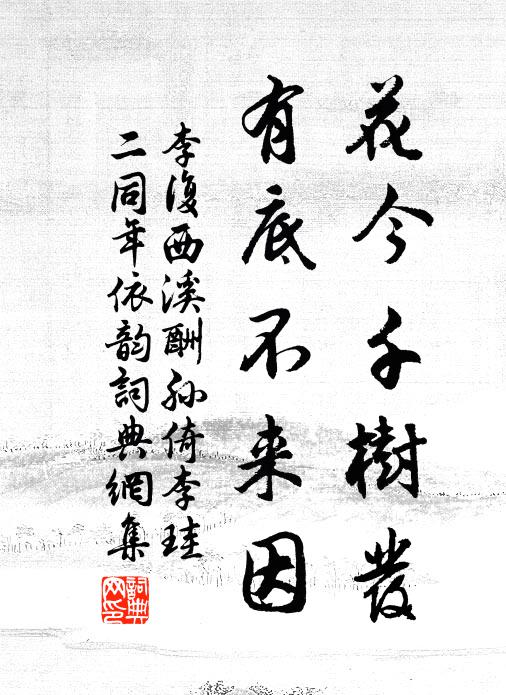 花今千樹發
有底不来因
李復西溪酬孙倚李珪
二同年依韵詞典網集
詞典
网印